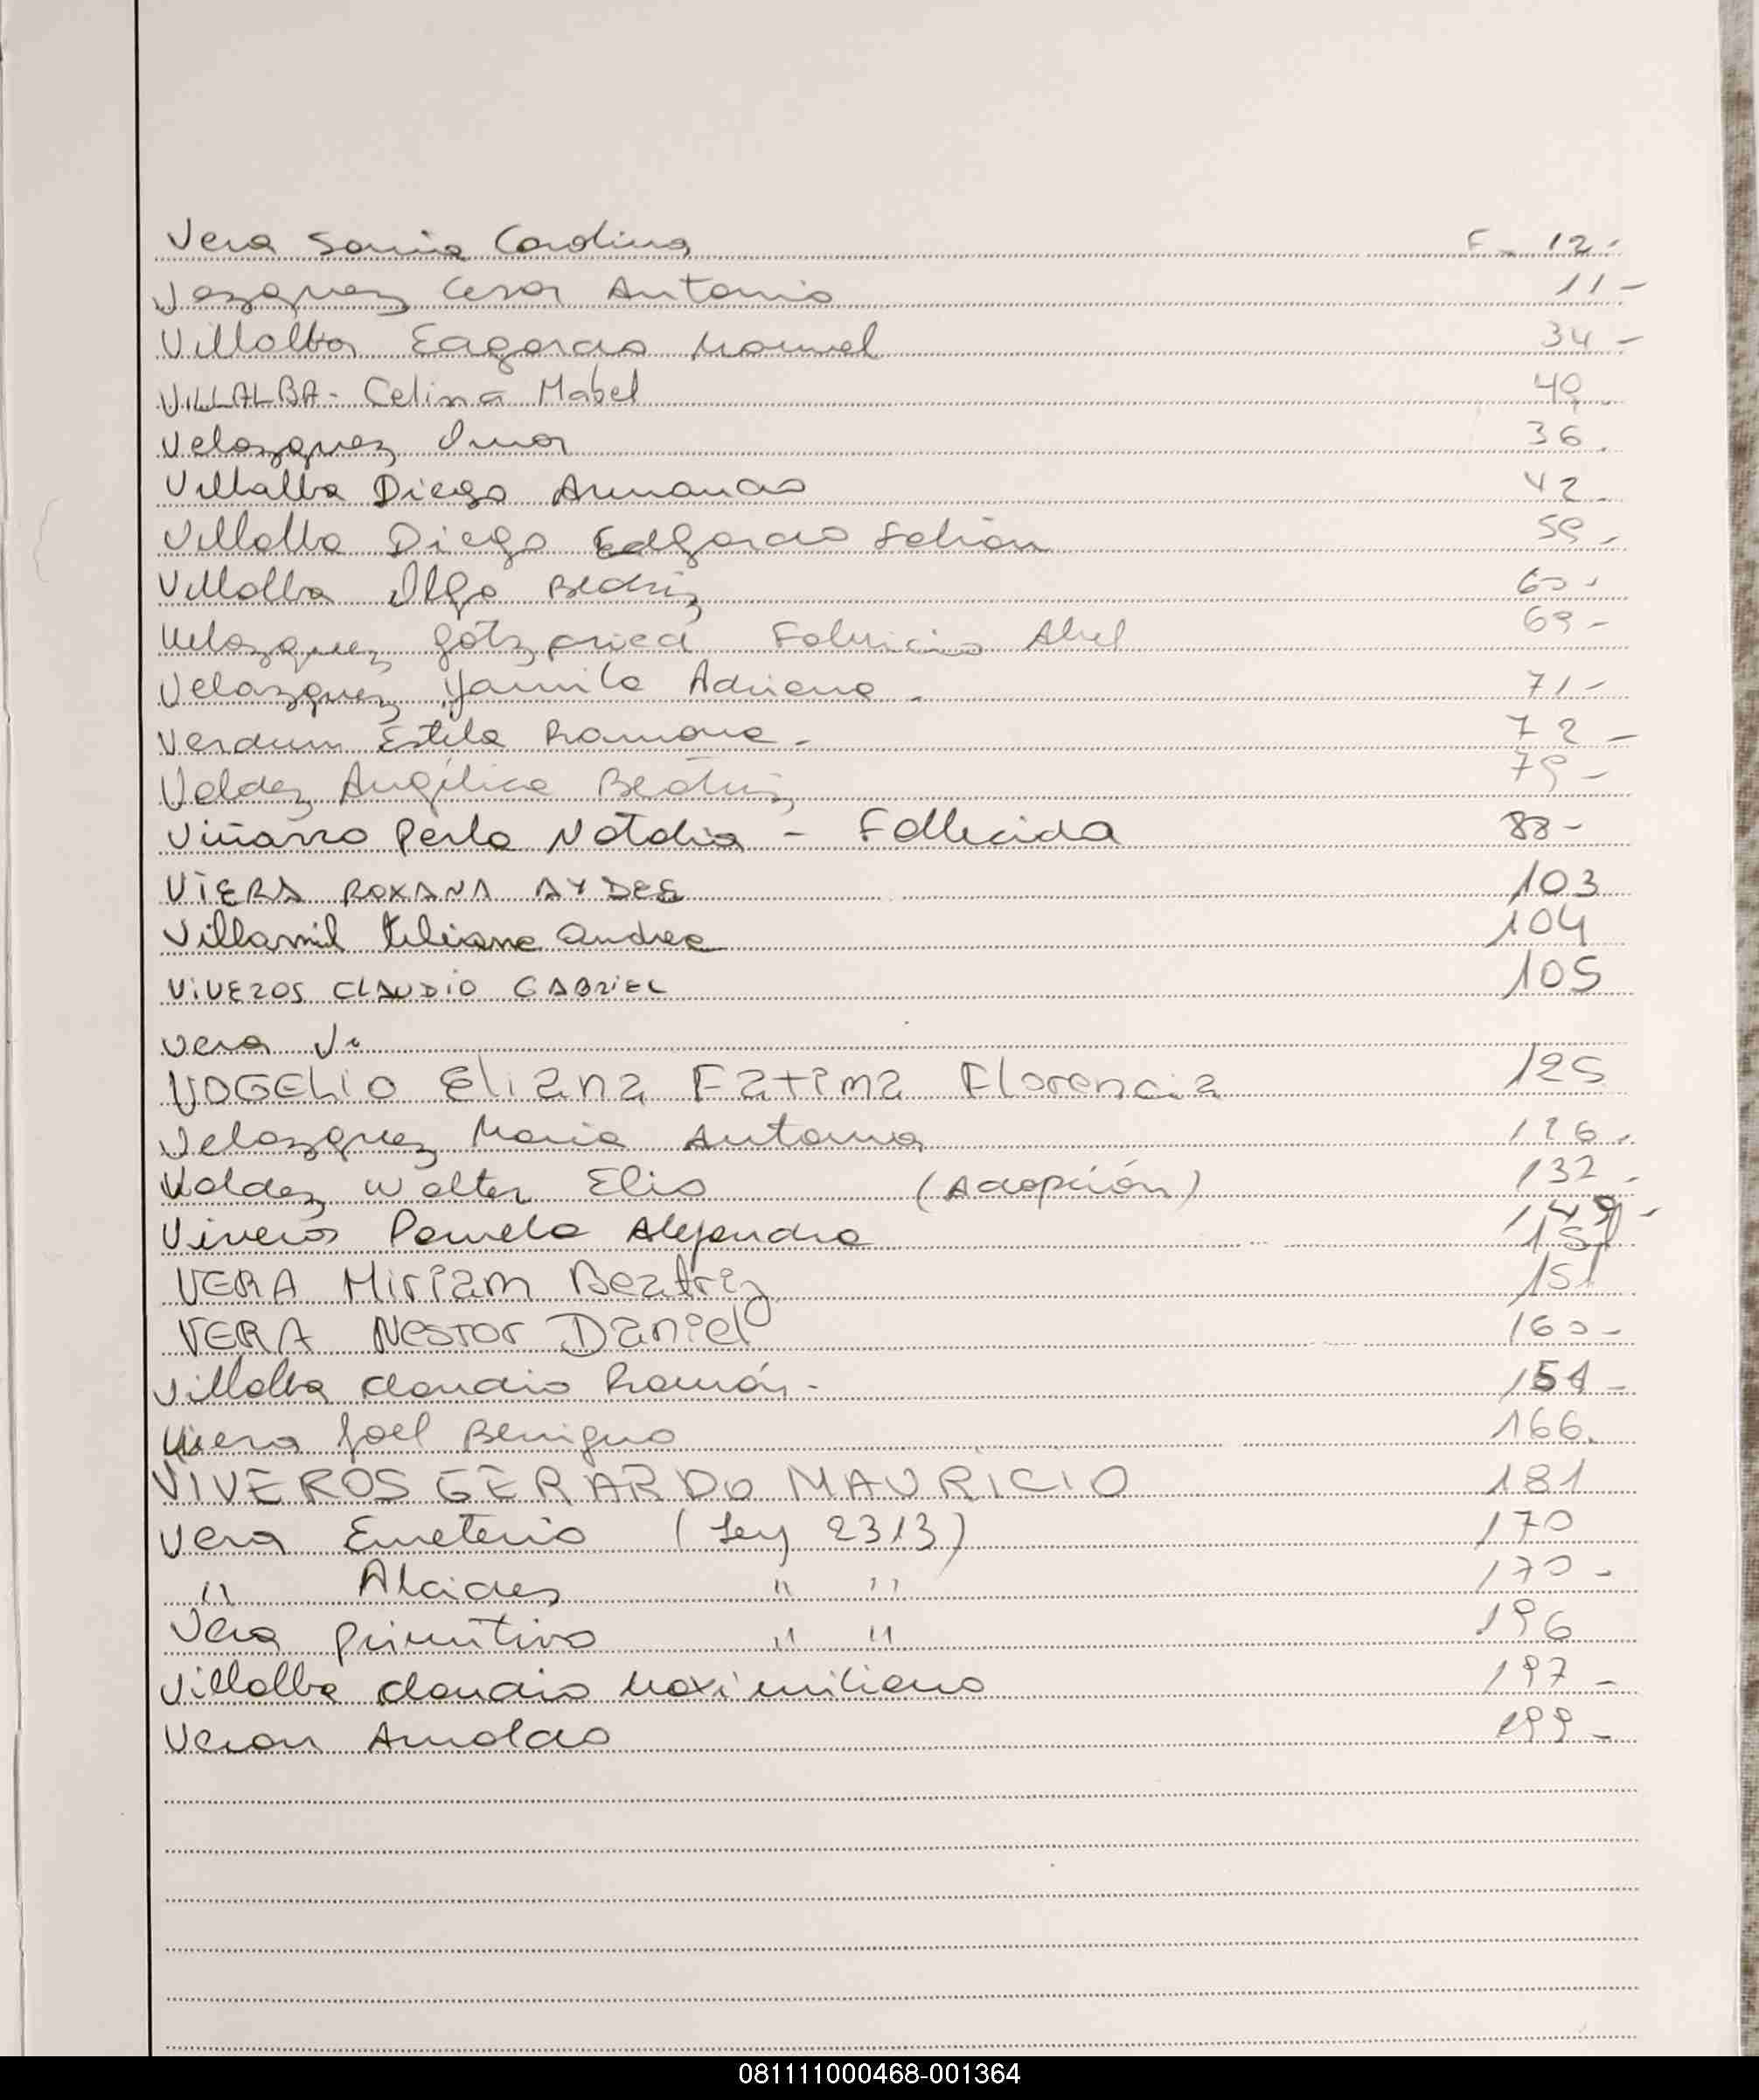 Vera Sonia Carolina F- 12-
Vazquez Cesar Antonio 11-
Villalba Edgardo Manuel 34-
VILLALBA- Celina Mabel 49
Velazquez Omar 36.
Villalba Diego Armando 42-
Villalba Diego Edgardo Fabián 59-
Villalba Olga Beatriz 60-
Velazquez Gotzfried Fabricio Abel 69-
Velazquez Yamila Adriana. 71-
Verdum Estela Ramona- 72-
Valdez Angélica Beatriz 79-
Viñarro Perla Natalia - Fallecida 88-
VIERA ROXANA AYDEE 103
Villamil Liliana Andrea 104
VIVEROS CLAUDIO GABRIEL 105
Vera Vi
VOGELIO Eliana Fatima Florencia 125
Velazquez Maria Antonia 126.
Valdez Walter Elio (Adopción) 132-
Viveros Pamela Alejandra 149-
VERA Miriam Beatriz 151
VERA Nestor Daniel 160-
Villalba Claudio Ramón-
Viera Joel Benigno 166.
VIVEROS GERARDO MAURICIO 181
Vera Emeterio (Ley 2313) 170
" Alcides " " 170-
Vera Primitivo " " 196
Villalba Claudio Maximiliano 197-
Veron Arnoldo 199-
081111000468-001364